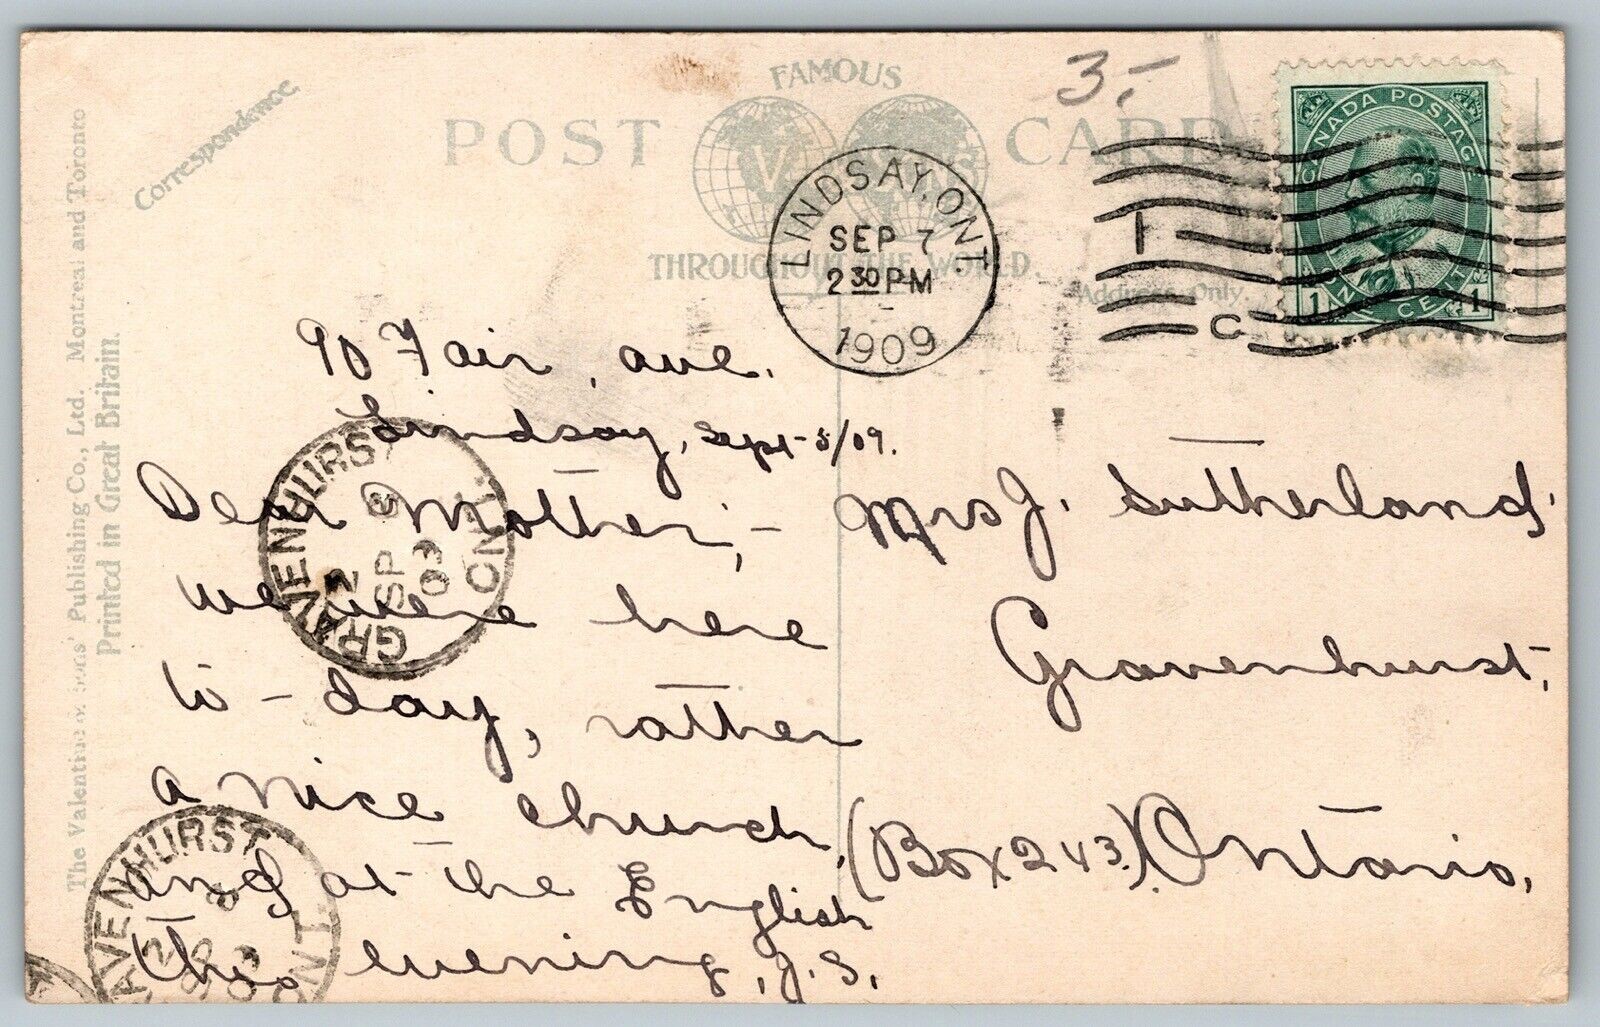 3.-
FAMOUS
POST CARD
THROUGHOUT THE WORLD.
Correspondence
Address Only
The Valentine & Sons' Publishing Co., Ltd. Montreal and Toronto
Printed in Great Britain.
LINDSAY, ONT.
SEP 7
2 30 PM
1909
C
CANADA POSTAGE
1 ONE CENT 1
90 Fair ave.
Lindsay, Sept-5/09.
Dear Mother,-
we were here
to-day, rather
a nice church,
and at the English
this evening, J.S.
Mrs J. Sutherland
Gravenhurst,
(Box 243) Ontario,
GRAVENHURST ONT.
SP 8
GRAVENHURST ONT.